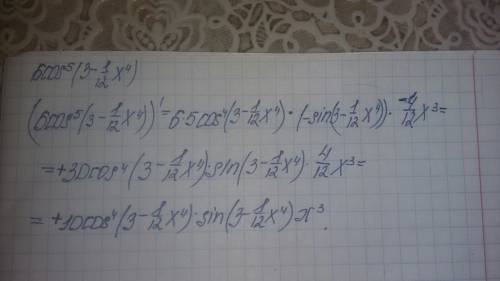 6cos⁵(3-1/12 x⁴)
(6cos⁵(3-1/12 x⁴))' = 6·5cos⁴(3-1/12 x⁴)·(-sin(3-1/12 x⁴))·-4/12 x³=
=+30cos⁴(3-1/12 x⁴)·sin(3-1/12 x⁴)·4/12 x³=
=+10cos⁴(3-1/12 x⁴)·sin(3-1/12 x⁴)x³.